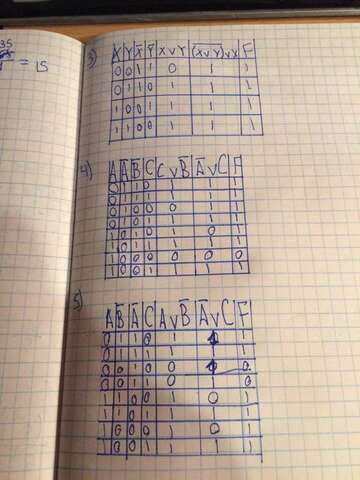 35
= 15
3)
X Y X̄ Ȳ X∨Y (X∨Y)∨X F
0 0 1 1 0 1 1
0 1 1 0 1 1 1
1 0 0 1 1 1 1
1 1 0 0 1 1 1
4)
A Ā B̄ C C∨B̄ Ā∨C F
0 1 1 0 1 1 1
0 1 1 1 1 1 1
0 1 0 0 0 1 1
0 1 0 1 1 1 1
1 0 1 0 1 0 1
1 0 1 1 1 1 1
1 0 0 0 0 0 0
1 0 0 1 1 1 1
5)
A B̄ Ā C A∨B̄ Ā∨C F
0 1 1 0 1 1 1
0 1 1 1 1 1 1
0 0 1 0 0 1 0
0 0 1 1 0 1 0
1 1 0 0 1 0 1
1 1 0 1 1 1 1
1 0 0 0 1 0 1
1 0 0 1 1 1 1